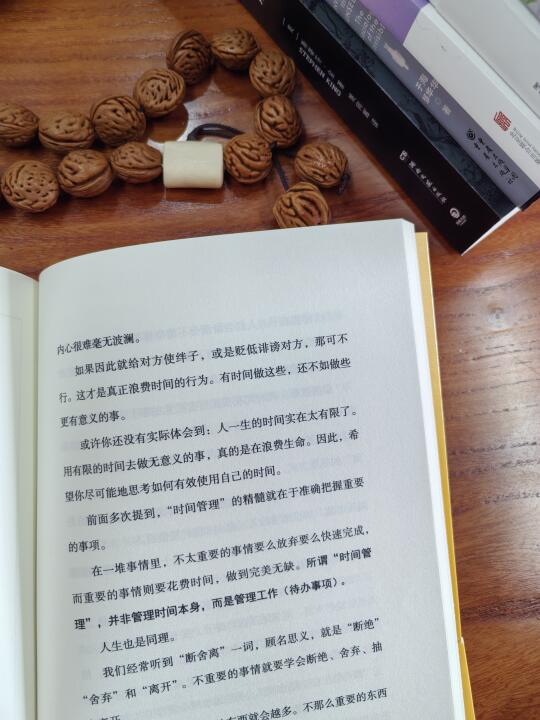 STEPHEN KING
内心很难毫无波澜。
如果因此就给对方使绊子，或是贬低诽谤对方，那可不
行。这才是真正浪费时间的行为。有时间做这些，还不如做些
更有意义的事。
或许你还没有实际体会到：人一生的时间实在太有限了。
用有限的时间去做无意义的事，真的是在浪费生命。因此，希
望你尽可能地思考如何有效使用自己的时间。
前面多次提到，“时间管理”的精髓就在于准确把握重要
的事项。
在一堆事情里，不太重要的事情要么放弃要么快速完成，
而重要的事情则要花费时间，做到完美无缺。所谓“时间管
理”，并非管理时间本身，而是管理工作（待办事项）。
人生也是同理。
我们经常听到“断舍离”一词，顾名思义，就是“断绝”
“舍弃”和“离开”。不重要的事情就要学会断绝、舍弃、抽
东西就会越多。不那么重要的东西